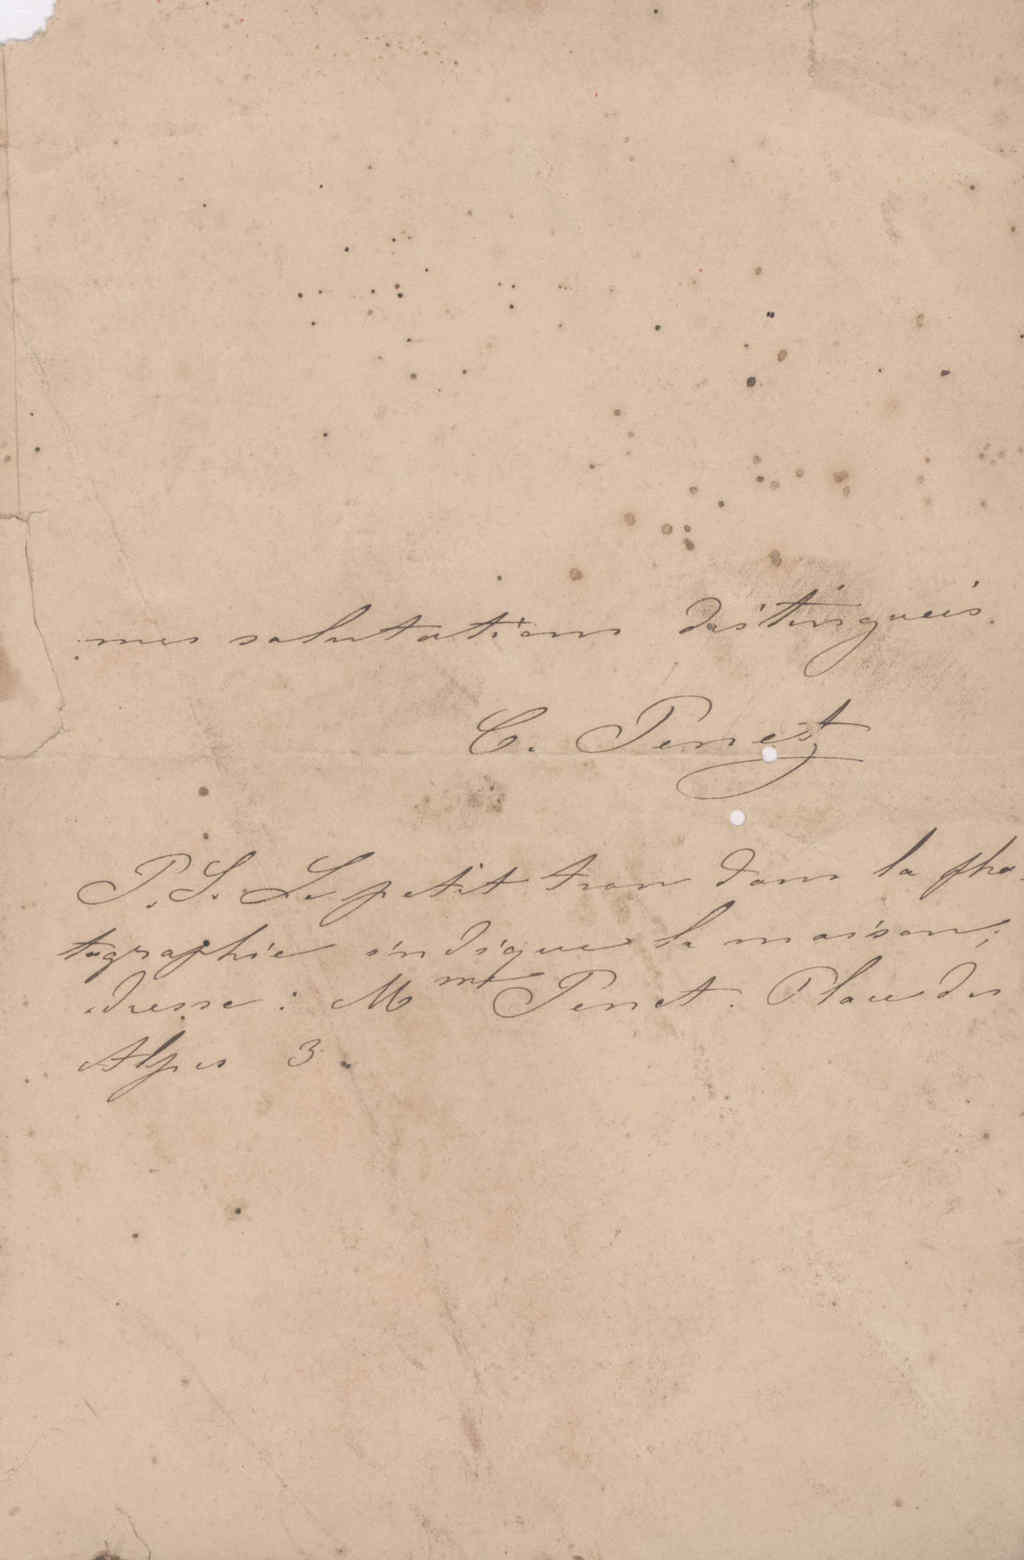 mes salutations distinguées.
C. Penet
P.S. Le petit trou dans la pho-
tographie indique la maison;
adresse: M^me Penet. Place des
Alpes 3.